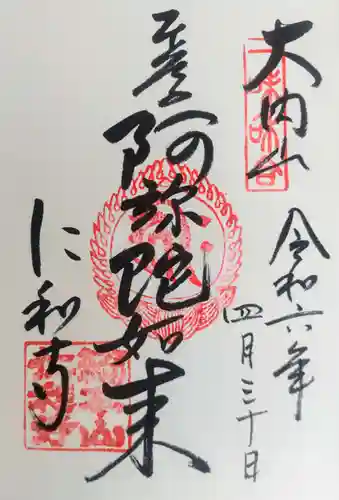 大内山
令和六年
四月三十日
阿弥陀如来
仁和寺